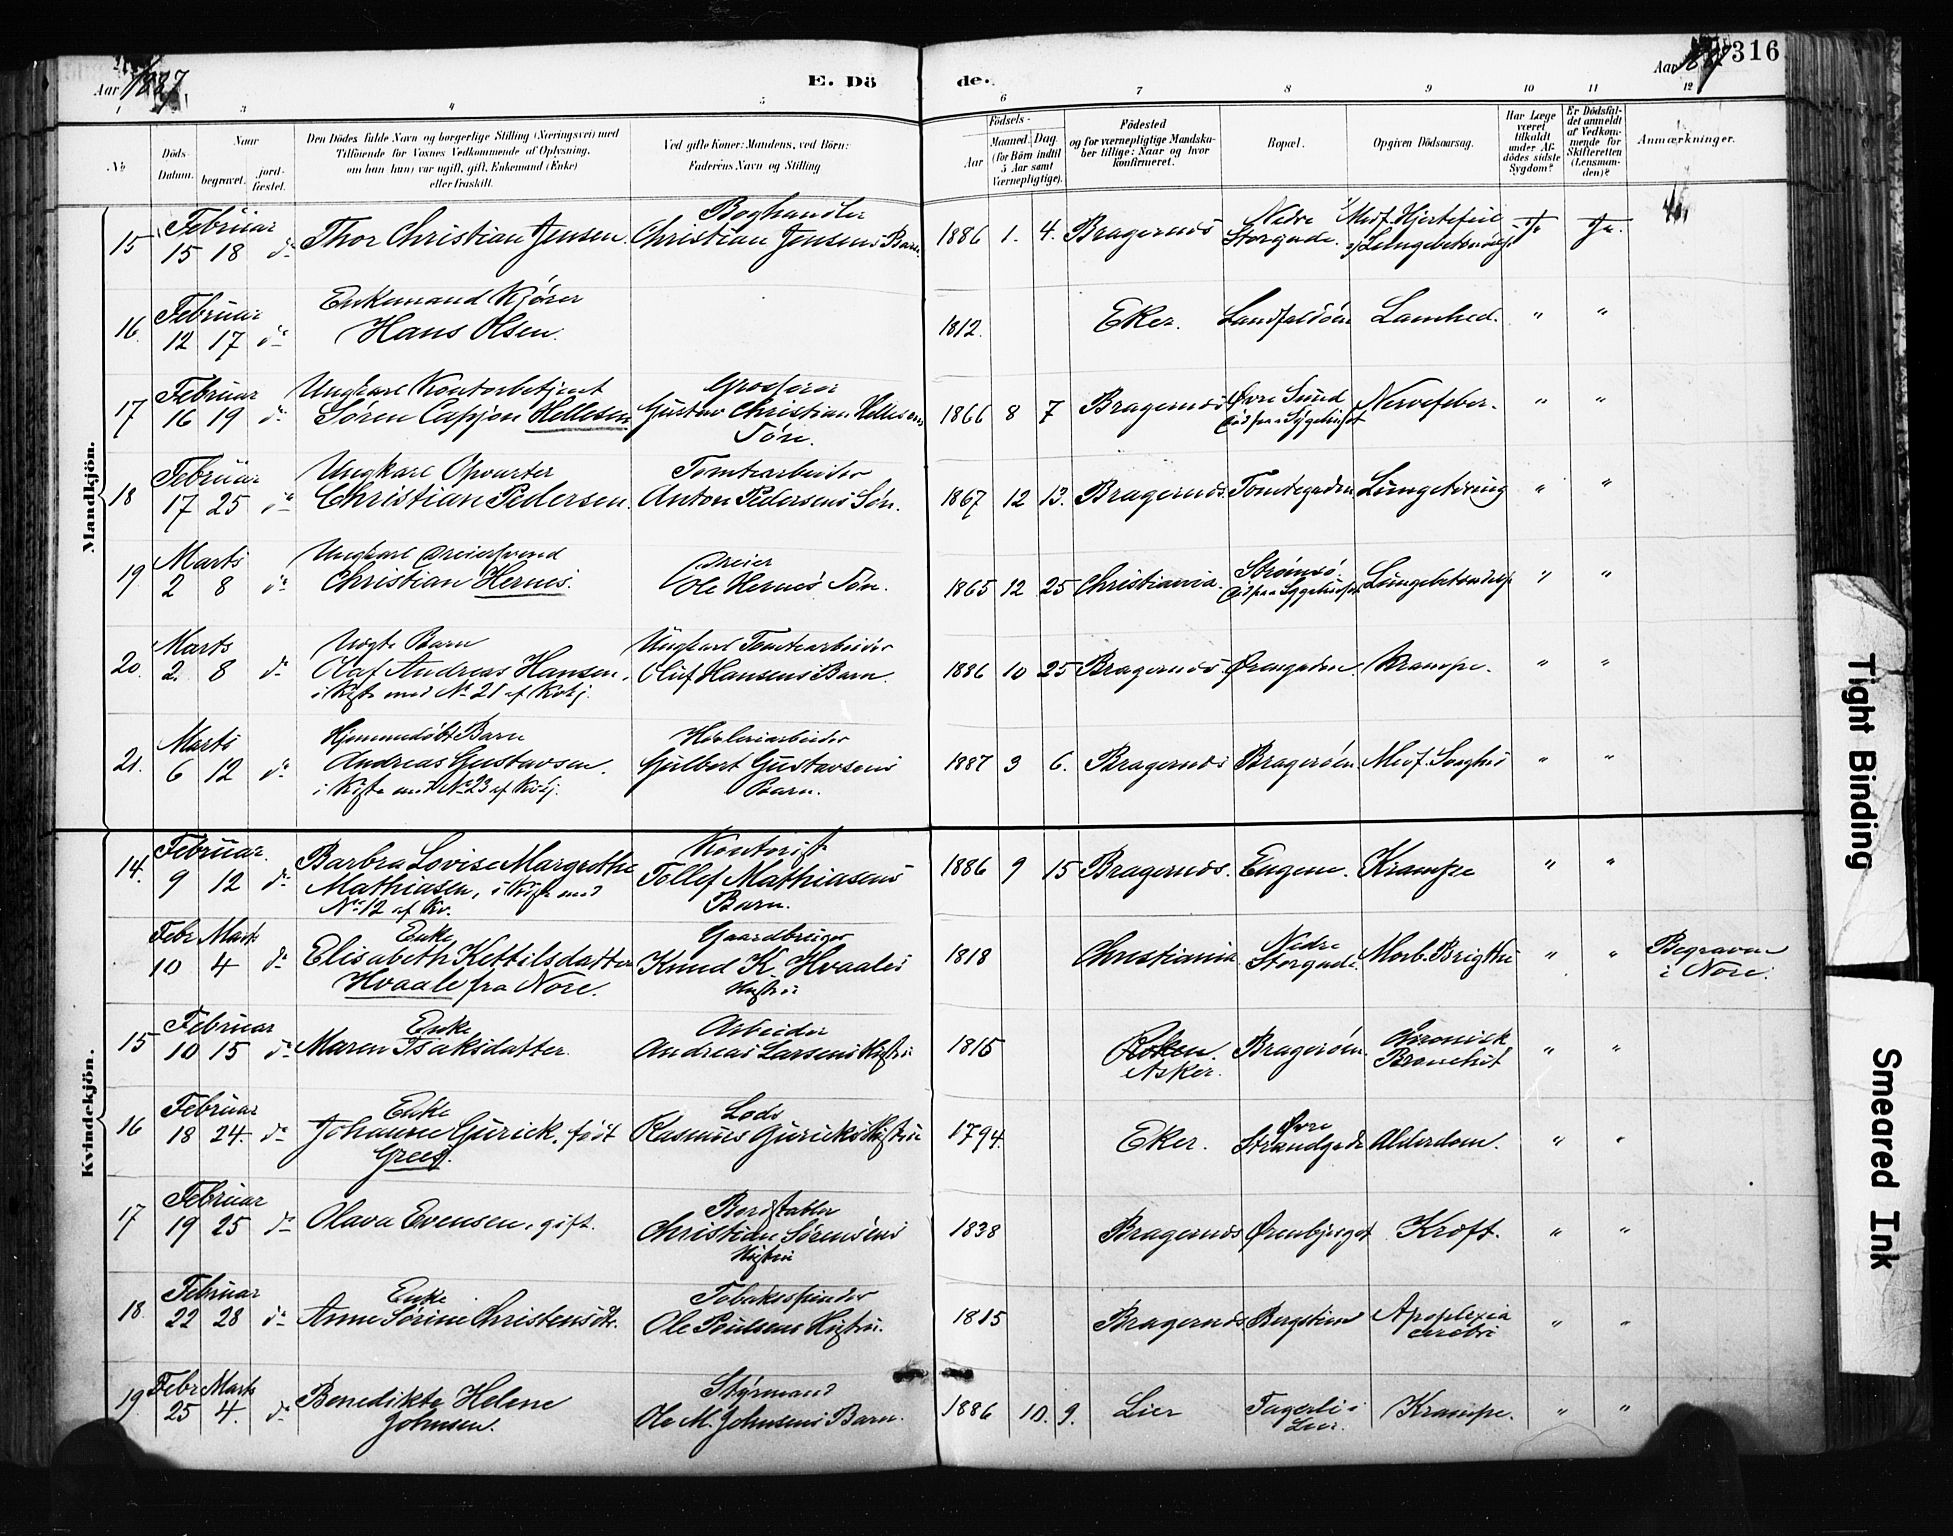 Aar 1887.
E. Dö
de.
Aar 1887
316
1 3 4 5 6 7 8 9 10 11 12
No
Döds Datum.
Naar
begravet.
jord-fæstet.
Den Dödes fulde Navn og borgerlige Stilling (Næringsvei) med
Tilföiende for Voxnes Vedkommende af Oplysning,
om han (hun) var ugift, gift, Enkemand (Enke)
eller fraskilt.
Ved gifte Koner: Mandens, ved Börn:
Faderens Navn og Stilling
Födsels-
Aar
Maaned. Dag.
(for Börn indtil
5 Aar samt
Værnepligtige).
Födested
og for værnepligtige Mandska-
ber tillige: Naar og hvor
konfirmeret.
Bopæl.
Opgiven Dödsaarsag.
Har Læge
været
tilkaldt
under Af-
dödes sidste
Sygdom?
Er Dödsfal-
det anmeldt
af Vedkom-
mende for
Skifteretten
(Lensman-
den)?
Anmærkninger.
Mandkjön.
15 Februar 15 18 do Thor Christian Jensen. Boghandler Christian Jensens Barn. 1886 1. 4. Bragernes Nedre Storgade. Medf. Hjertefeil Ja Ja.
16. Februar 12 17 do Enkemand Kjører Hans Olsen. 1812. Eker. Landfaldöen Lamhed. " "
17 Februar 16 19 do Ungkarl Kontorbetjent Søren Cappelen Hellesen Grosserer Gustav Christian Hellesens Søn. 1866 8 7 Bragernes Øvre Sund Død paa Sygehuset Nervefeber. " "
18 Februar 17 25 do Ungkarl Opvarter Christian Pedersen. Tomtearbeider Anton Pedersens Søn. 1867 12 13. Bragernes. Tomtegaden Lungetæring " "
19 Marts 2 8 do Ungkarl Dreiersvend Christian Hernes. Dreier Ole Hernes Søn. 1865 12 25 Christiania. Strømsø. Død paa Sygehuset Lungebetændelse " "
20. Marts 2. 8 do Uægte Barn Olaf Andreas Hansen. i Kiste med No 21 af Kvkj. Ungkarl Tomtearbeider Oluf Hansens Barn. 1886 10 25 Bragernes Ørengaden. Krampe. " "
21. Marts 6 12 do Hjemmedøbt Barn Andreas Gustavsen. i Kiste med No 23 af Kvkj. Høvleriarbeider Gulbert Gustavsens Barn. 1887 3 6. Bragernes Bragerøen Medf. Svaghed " "
Kvindekjön.
14. Februar. 9 12 do Barbra Lovise Margrethe Mathiasen, i Kiste med No 12 af Kv. Kontorist Tollef Mathiasens Barn. 1886 9 15 Bragernes. Engene. Krampe " "
Febr Mart. 10 4 do Enke Elisabeth Kettilsdatter Hvaale fra Nore. Gaardbruger Knud K. Hvaales Hustru 1818 Christiania. Nedre Storgade. Morb. Brigthii " " Begraven i Nore.
15 Februar 10 15 do Enke Maren Isaksdatter. Arbeider Andreas Larsens Hustru 1815 Røken. Asker. Bragerøen. Chronisk Bronchit " "
16 Februar 18 24 do Enke Johanne Gurick, født Greeg. Lods Rasmus Guricks Hustru 1794. Eker. Øvre Strandgade Alderdom. " "
17 Februar 19 25 do Olava Evensen, gift. Bordstabler Christian Sørensens Hustru 1838 Bragernes Ørenbjerget Kræft. " "
18. Februar 22 28 do Enke Anne Sørine Christensdtr. Tobaksspinder Ole Poulsens Hustru. 1815 Bragernes. Bergstien Apoplexia cerebri " "
19 Febr Marts 25 4. do Benedikte Helene Johnsen. Styrmand Ole M. Johnsens Barn. 1886 10. 9. Lier Fagerli i Lier. Krampe. " "
Tight Binding
Smeared Ink